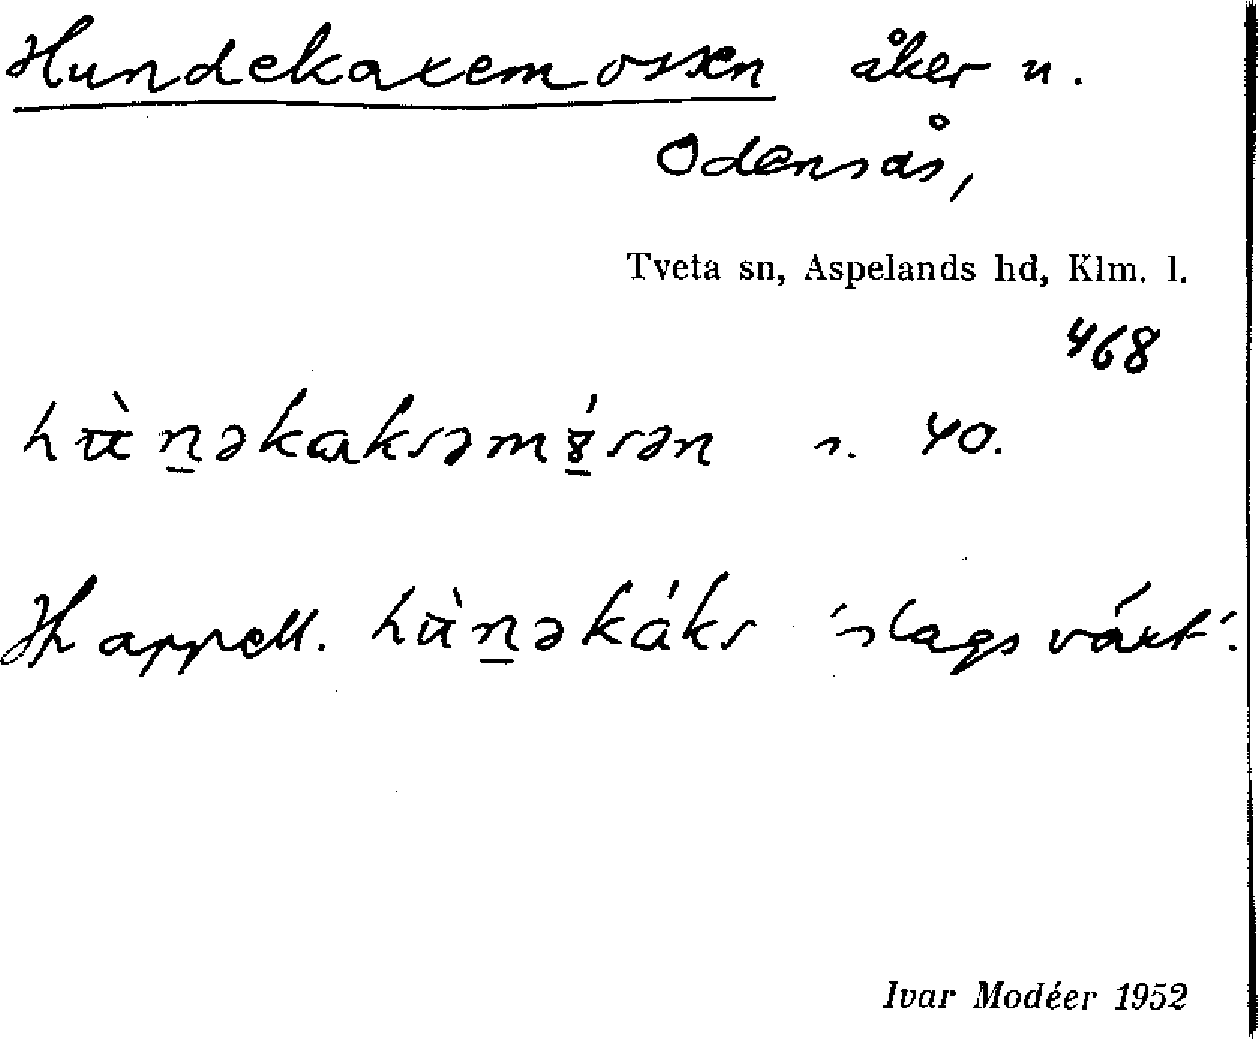 Hundekaxemossen åker u.
Odensås,
Tveta sn, Aspelands hd, Klm. l.
468
hùn̠əkaksəmɤ̠́sən n. 40.
Jfr appell. hùn̠əkáks 'slags växt'.
Ivar Modéer 1952